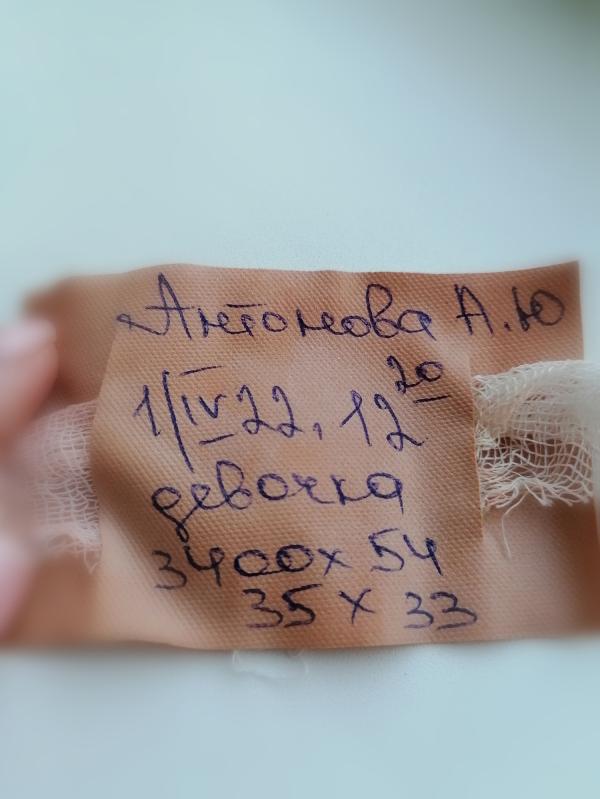 Антонова А.Ю
1/IV 22, 12 20
девочка
3400 х 54
35 х 33